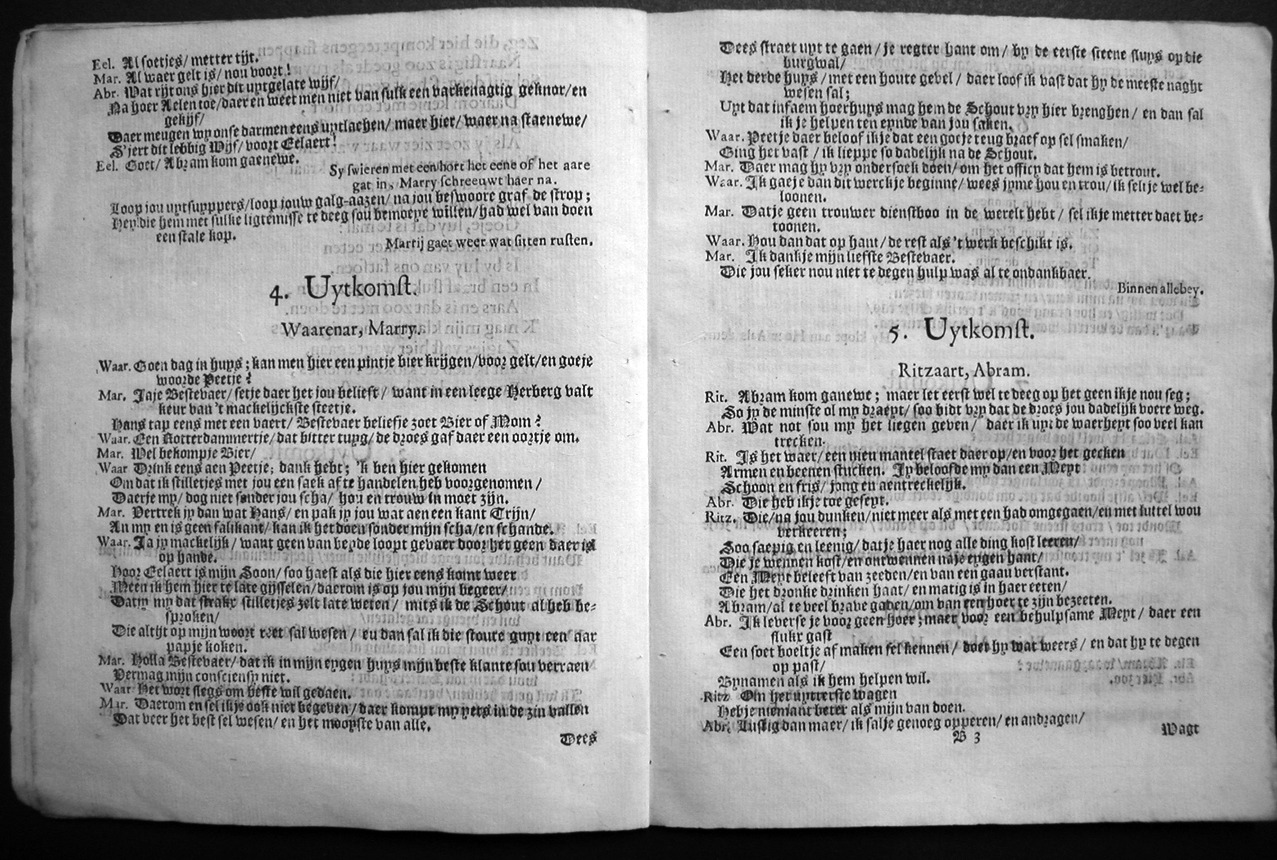 Eel. Al soetjes/ metter tijt.
Mar. Al waer gelt is/ nou voort!
Abr. Wat rijt ons hier dit uytgelate wijf/
Na hoer Aelen toe/ daer en weet men niet van sulk een varkenagtig geknor/ en
gekijf/
Daer meugen wy onse darmen eens uytlachen/ maer hier/ waer na staenewe/
S'jert dit lebbig Wijf/ voort Eelaert!
Eel. Goet/ Abram kom gaenewe.
Sy swieren met een hort het eene of het aare
gat in, Marry schreeuwt haer na.
Loop jou uytsuyppers/ loop jouw galg-aazen/ na jou beswoore graf de strop;
Hey! die hem met sulke ligtemisse te deeg sou bemoeye willen/ had wel van doen
een stale kop.
Martij gaet weer wat sitten rusten.
4. Uytkomst.
Waarenar, Marry.
Waar. Goen dag in huys; kan men hier een pintje bier krijgen/ voor gelt/ en goeje
woorde Peetje?
Mar. Jaje Bestevaer/ setje daer het jou belieft/ want in een leege Herberg valt
keur van 't mackelijckste steetje.
Hans tap eens met een vaert/ Bestevaer beliefje zoet Bier of Mom?
Waar. Een Rotterdammertje/ dat bitter tuyg/ de droes gaf daer een oortje om.
Mar. Wel bekompje Bier/
Waar Drink eens aen Peetje; dank hebt; 'k ben hier gekomen
Om dat ik stilletjes met jou een saek af te handelen heb voorgenomen/
Daerje my/ dog niet sonder jou scha/ hou en trouw in moet zijn.
Mar. Vertrek jy dan wat Hans/ en pak jy jou wat aen een kant Trijn/
An my en is geen falikant/ kan ik het doen sonder mijn scha/ en schande.
Waar. Ja jy mackelijk/ want geen van beyde loopt gevaer door het geen daer is
op hande.
Hoor Eelaert is mijn Soon/ soo haest als die hier eens komt weer
Meen ik hem hier te late gijselen/ daerom is op jou mijn begeer/
Datjy my dat strakx stilletjes zelt late weten/ mits ik de Schout al heb be-
sproken/
Die altijt op mijn woort reet sal wesen/ en dan sal ik die stoute guyt een aar
papje koken.
Mar. Holla Bestevaer/ dat ik in mijn eygen huys mijn beste klante sou verraen
Vermag mijn consciensy niet.
Waar Het wort slegs om beste wil gedaen.
Mar. Daerom en sel ikje ook niet begeven/ daer kompt my yets in de zin vallen
Dat veer het best sel wesen/ en het moopste van alle.
Dees
Dees straet uyt te gaen/ je regter hant om/ by de eerste steene sluys op die
burgwal/
Het derde huys/ met een houte gevel/ daer loof ik vast dat hy de meeste naght
wesen sal;
Uyt dat infaem hoerhuys mag hem de Schout vry hier brenghen/ en dan sal
ik je helpen ten eynde van jou saken.
Waar. Peetje daer beloof ikje dat een gotje teug braef op sel smaken/
Ging het vast/ ik lieppe so dadelijk na de Schout.
Mar. Daer mag hy vry ondersoek doen/ om het officy dat hem is betrout.
Waar. Ik gaeje dan dit werckje beginne/ wees jy me hou en trou/ ik sel tje wel be-
loonen.
Mar. Datje geen trouwer dienstboo in de werelt hebt/ sel ikje metter daet be-
toonen.
Waar. Hou dan dat op hant/ de rest als 't werk beschikt is.
Mar. Ik dankje mijn liefste Bestevaer.
Die jou seker nou niet te degen hulp was al te ondankbaer.
Binnen allebey.
5. Uytkomst.
Ritzaart, Abram.
Rit. Abram kom ganewe; maer let eerst wel te deeg op het geen ikje nou seg;
So jy de minste ol my draeyt/ soo bidt vry dat de droes jou dadelijk voere weg.
Abr. Wat not sou my het liegen geven/ daer ik uyt de waerheyt soo veel kan
trecken.
Rit. Is het waer/ een nieu mantel staet daer op/ en voor het gecken
Armen en beenen stucken. Jy beloofde my dan een Meyt
Schoon en fris/ jong en aentreckelijk.
Abr. Die heb ikje toe geseyt.
Ritz. Die/ na jou dunken/ niet meer als met een had omgegaen/ en met luttel wou
verkeeren;
Soo saepig en leenig/ datje haer nog alle ding kost leeren/
Die je wennen kost/ en ontwennen naje eygen hant/
Een Meyt beleeft van zeeden/ en van een gaau verstant.
Die het dronke drinken haat/ en matig is in haer eeten/
Abram/ al te veel brave gaben/ om van een hoer te zijn bezeeten.
Abr. Ik leverse je voor geen hoer; maer voor een behulpsame Meyt/ daer een
flukx gast
Een soet boeltje af maken sel kennen/ doet hy wat weers/ en dat hy te degen
op past/
Bynamen als ik hem helpen wil.
Ritz Om het uytterste wagen
Heb je niemant beter als mijn van doen.
Abr. Lustig dan maer/ ik salje genoeg opperen/ en andragen/
B 3
Wagt